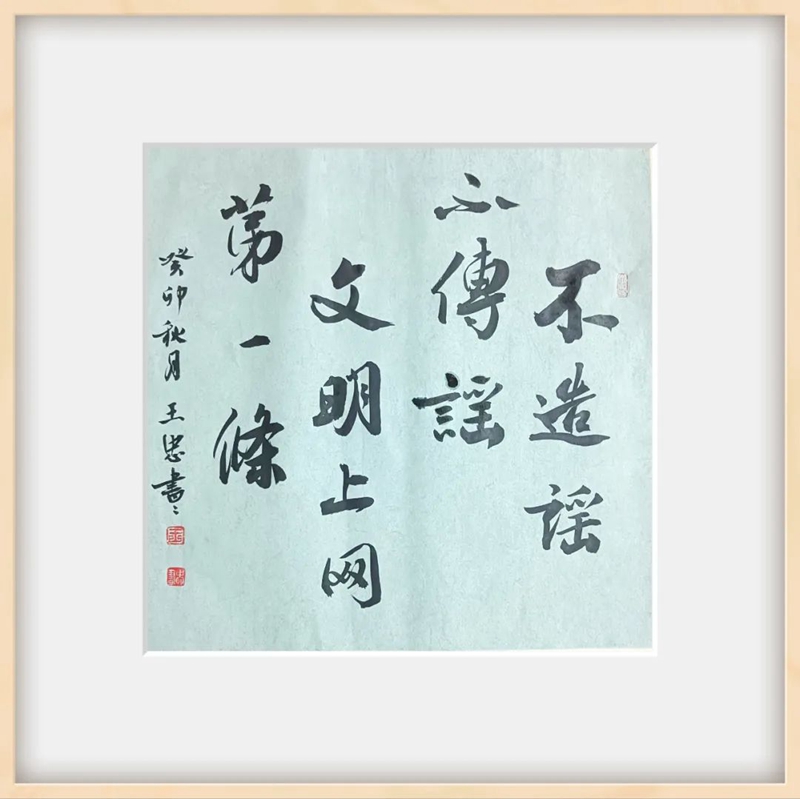 不造谣
不傳謡
文明上网
第一條
癸卯秋月王忠書